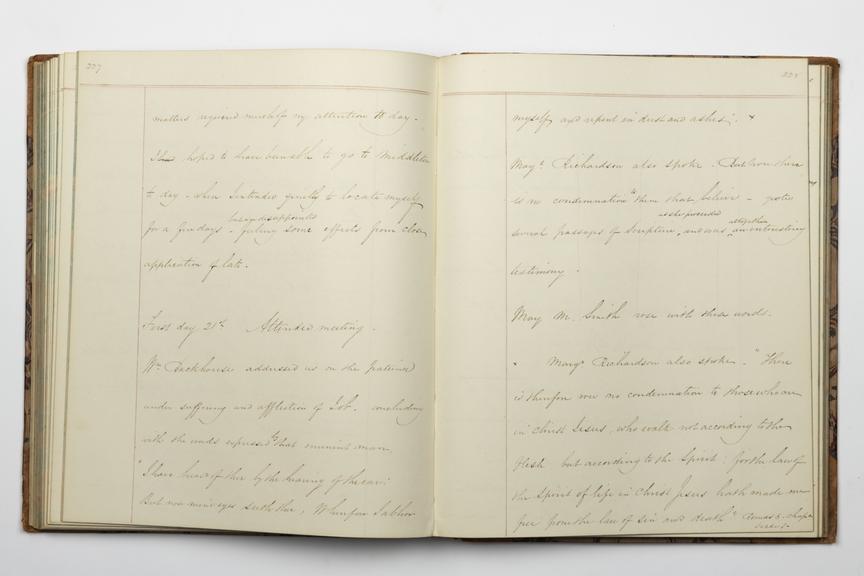 227
matters required much of my attention to day.
hoped to have been able to go to Middleton
to day - when I intended quietly to locate myself
being disappointed
for a few days - feeling some effects from close
application of late.
First day 21st Attended meeting.
Wm Backhouse addressed us on the patience
under suffering and affliction of Job. concluding
with the words expressed by that eminent man
"I have heard of thee by the hearing of the ear:
But now mine eye seeth thee, Wherefore I abhor
228
myself, and repent in dust and ashes". x
Margt Richardson also spoke. But now there
is no condemnation to them that believe -
as she proceeded altogether
several passages of Scripture, and was an interesting
testimony.
Mary M. Smith rose with these words.
x Margt Richardson also spoke. "There
is therefore now no condemnation to those who are
in Christ Jesus, who walk not according to the
flesh but according to the Spirit: for the law of
the Spirit of life in Christ Jesus hath made me
free from the law of sin and death" Romans 8. chapr